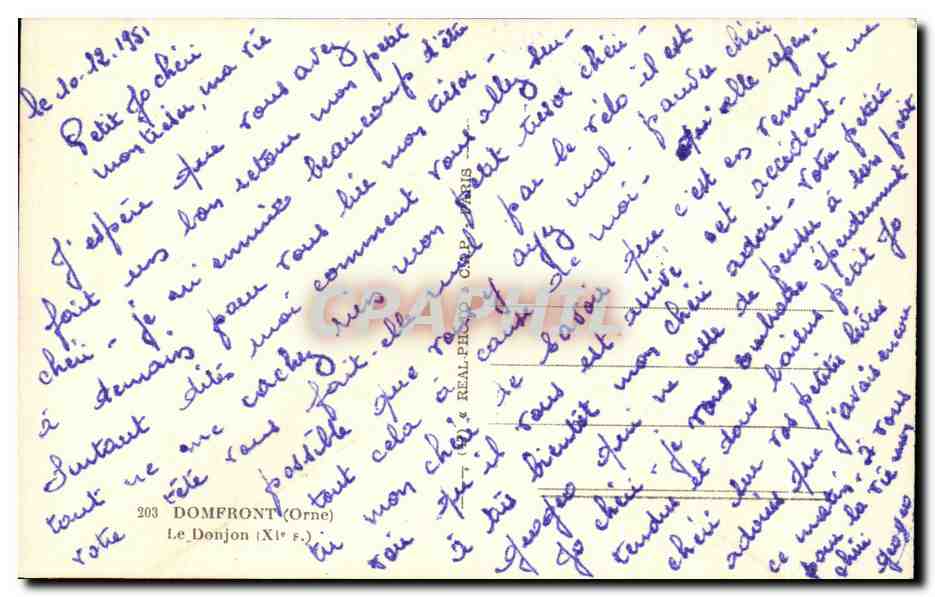 le 10.12.1951
Petit Jo chéri
mon trésor, ma vie
J'espère que vous avez
fait un bon retour mon petit
chéri - je m'ennuie beaucoup d'être
à demain pour vous lire mon trésor -
Surtout dites moi comment vous allez
tout ne me cachez rien mon petit trésor chéri -
votre tête vous fait-elle mal par le vélo il est
possible que vous ayez mal - pauvre chéri
tout cela à cause de moi -
mon chéri de savoir que c'est en venant me
voir qu'il vous est arrivé cet accident -
à très bientôt mon chéri adoré - votre petite
geogeo qui ne cesse de penser à son petit
Jo chéri - je vous embrasse éperdument
tendres et doux baisers petit Jo
chéri sur vos petites lèvres
adorées que j'avais encore
ce matin - à vous
pour la vie mon
chéri
geogeo
203 DOMFRONT (Orne)
Le Donjon (XIe s.)
« REAL-PHOTO » C.A.P. PARIS
CPAPHIL